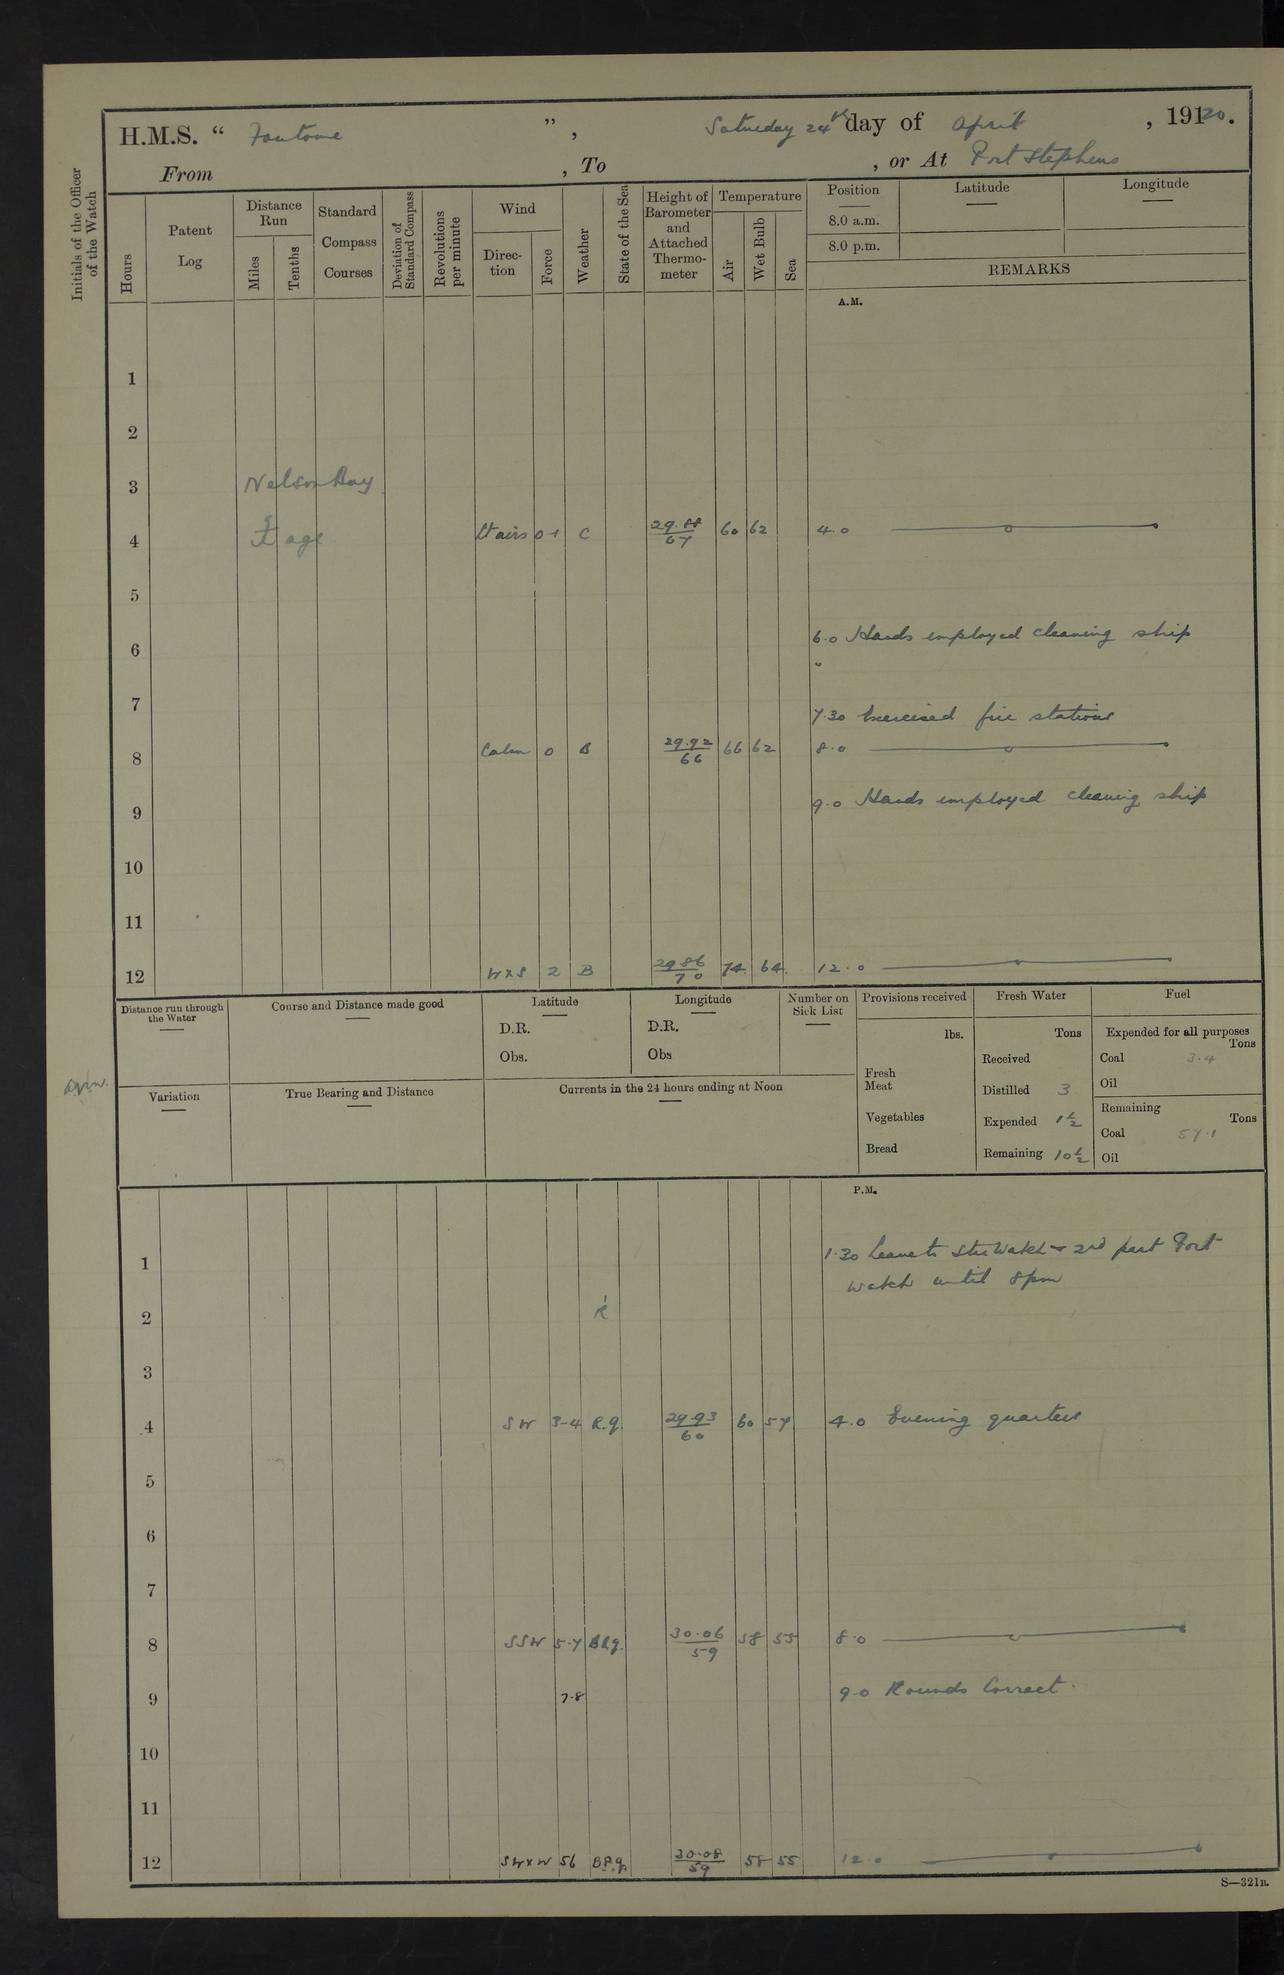 H.M.S. “ Fantome ” , Saturday 24th day of April , 19120.
From , To , or At Port Stephens
Initials of the Officer of the Watch
Hours
Patent Log
Distance Run
Miles
Tenths
Standard Compass Courses
Deviation of Standard Compass
Revolutions per minute
Wind
Direction
Force
Weather
State of the Sea
Height of Barometer and Attached Thermometer
Temperature
Air
Wet Bulb
Sea
Position Latitude Longitude
8.0 a.m.
8.0 p.m.
REMARKS
A.M.
1
2
3 Nelson Bay
4 age Lt airs 0-1 C 29.88/67 60 62 4.0
5
6 6.0 Hands employed cleaning ship
7 7.30 Exercised fire stations
8 Calm 0 B 29.92/66 66 62 8.0
9 9.0 Hands employed cleaning ship
10
11
12 WXS 2 B 29 86/70 74 64 12.0
Distance run through the Water
Course and Distance made good
Latitude
D.R.
Obs.
Longitude
D.R.
Obs
Number on Sick List
Provisions received
lbs.
Fresh Meat
Vegetables
Bread
Fresh Water
Tons
Received
Distilled 3
Expended 1½
Remaining 10½
Fuel
Expended for all purposes
Tons
Coal 3.4
Oil
Remaining
Tons
Coal 57.1
Oil
Variation
True Bearing and Distance
Currents in the 24 hours ending at Noon
P.M.
1 1.30 Leave to Stbd Watch & 2nd part Port
watch until 8pm
2 R
3
4 SW 3-4 R.q. 29.93/60 60 57 4.0 Evening quarters
5
6
7
8 SSW 5-7 BRq. 30.06/59 58 55 8.0
9 7.8 9.0 Rounds Correct.
10
11
12 SWXW 56 30.08/59 58 55 12.0
S—321B.